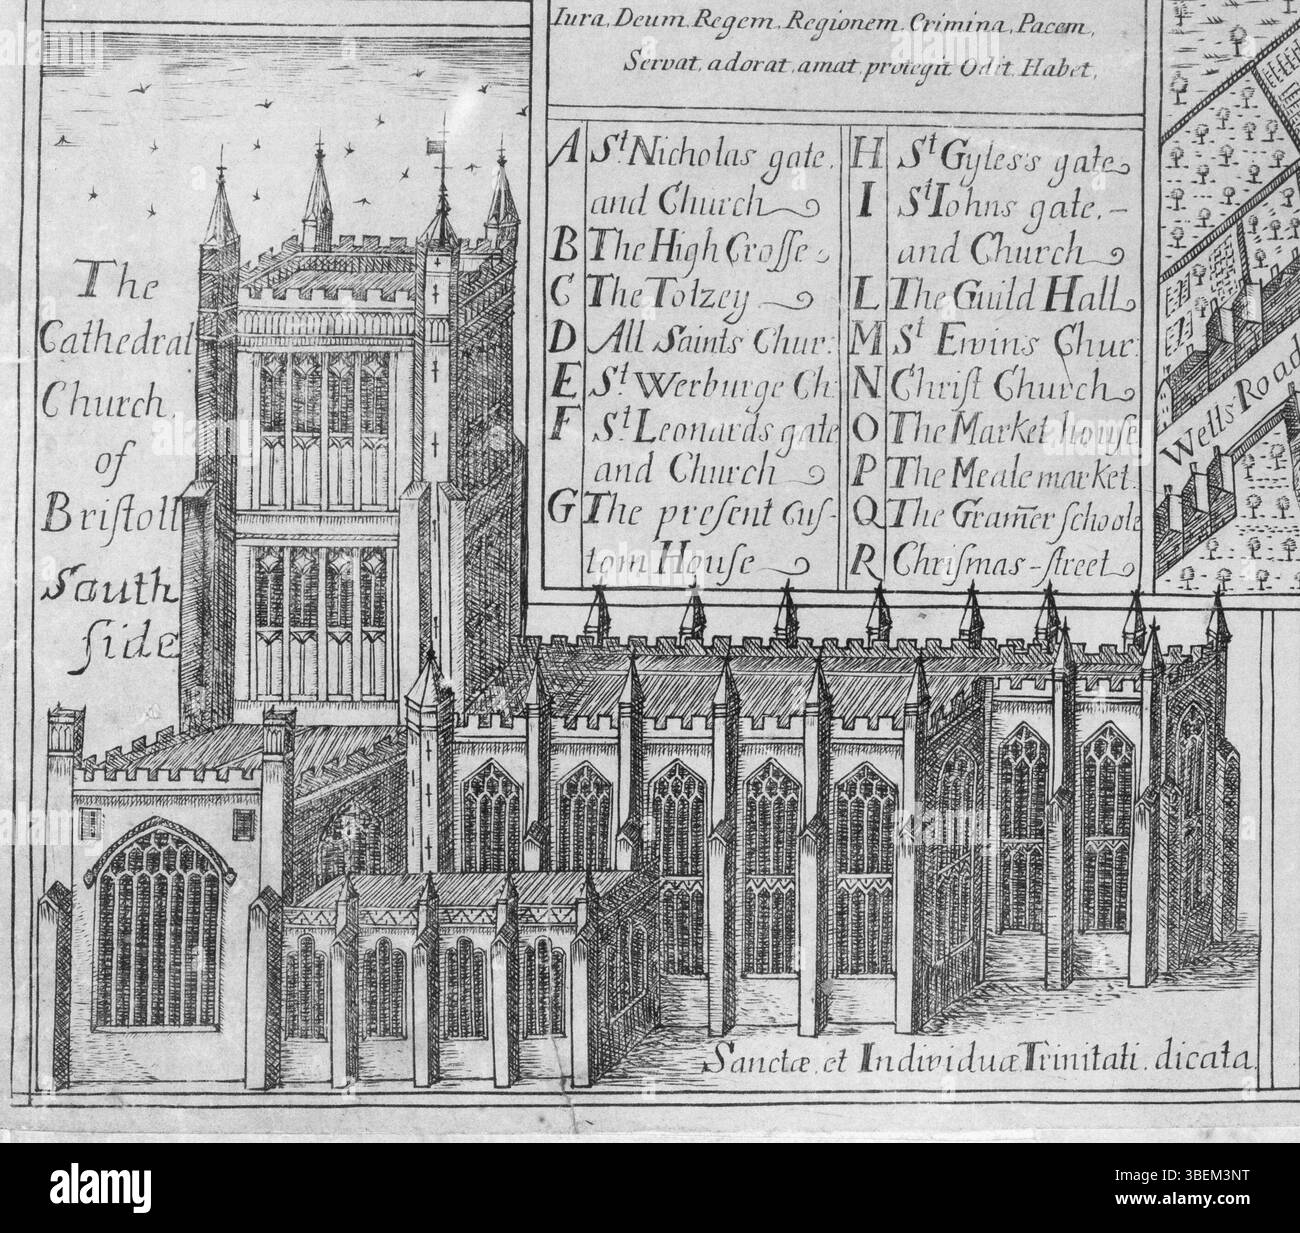 Iura, Deum, Regem, Regionem, Crimina, Pacem,
Servat, adorat, amat, protegit Odit, Habet,
The
Cathedral
Church
of
Briſtoll
South
ſide
A St. Nicholas gate,
and Church
B The High Croſſe
C The Tolzey
D All Saints Chur:
E St. Werburge Ch:
F St. Leonards gate
and Church
G The preſent Cus-
tom Houſe
H St Gyles's gate
I St Iohns gate,-
and Church
L The Guild Hall
M St Ewins Chur:
N Chriſt Church
O The Market houſe
P The Meale market.
Q The Gram̅er ſchoole
R Chriſmas-ſtreet
Wells Road
Sanctæ, et Individuæ Trinitati, dicata
alamy
Image ID: 3BEM3NT
www.alamy.com